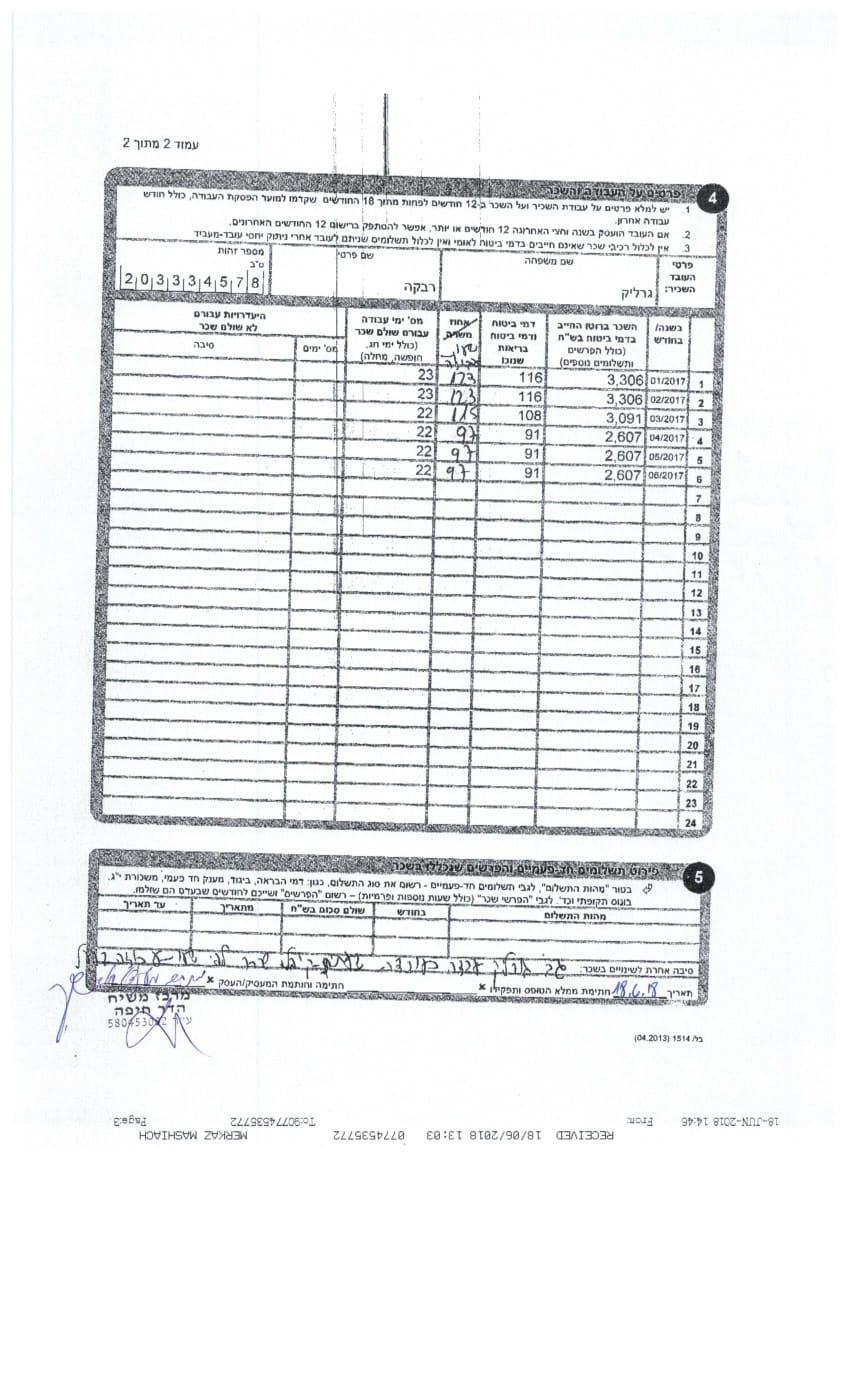 עמוד 2 מתוך 2
4 פרטים על העבודה והשכר
1. יש למלא פרטים על עבודת השכיר ועל השכר ב-12 חודשים לפחות מתוך 18 החודשים שקדמו למועד הפסקת העבודה, כולל חודש
עבודה אחרון.
2. אם העובד הועסק בשנה וחצי האחרונה 12 חודשים או יותר, אפשר להסתפק ברישום 12 החודשים האחרונים.
3. אין לכלול רכיבי שכר שאינם חייבים בדמי ביטוח לאומי ואין לכלול תשלומים שניתנים לעובד אחרי ניתוק יחסי עובד-מעביד
פרטי העובד השכיר: שם משפחה שם פרטי מספר זהות ס"ב
גרליק רבקה 2 0 3 3 3 4 5 7 8
בשנה/ בחודש
השכר ברוטו החייב בדמי ביטוח בש"ח (כולל הפרשים ותשלומים נוספים)
דמי ביטוח ודמי ביטוח בריאות שנוכו
אחוז משרה
מס' ימי עבודה עבורם שולם שכר (כולל ימי חג, חופשה, מחלה)
היעדרויות עבורם לא שולם שכר
מס' ימים סיבה
1 01/2017 3,306 116 123 23
2 02/2017 3,306 116 123 23
3 03/2017 3,091 108 115 22
4 04/2017 2,607 91 97 22
5 05/2017 2,607 91 97 22
6 06/2017 2,607 91 97 22
7
8
9
10
11
12
13
14
15
16
17
18
19
20
21
22
23
24
5 פירוט תשלומים חד-פעמיים והפרשים שנכללו בשכר
בטור "מהות התשלום", לגבי תשלומים חד-פעמיים - רשום את סוג התשלום, כגון: דמי הבראה, ביגוד, מענק חד פעמי, משכורת י"ג,
בונוס תקופתי וכד'. לגבי "הפרשי שכר" (כולל שעות נוספות ופרמיות) – רשום "הפרשים" ושייכם לחודשים שבעדם הם שולמו.
מהות התשלום בחודש שולם סכום בש"ח מתאריך עד תאריך
סיבה אחרת לשינויים בשכר:
תאריך 18.6.18 חתימת ממלא הטופס ותפקידו x חתימה וחותמת המעסיק/העסק x
מרכז משיח
הדר חיפה
בל/ 1514 (04.2013)
18-JUN-2018 14:45 From: To:90774535772 Page:3
RECEIVED 18/06/2018 13:03 0774535772 MERKAZ MASHIACH